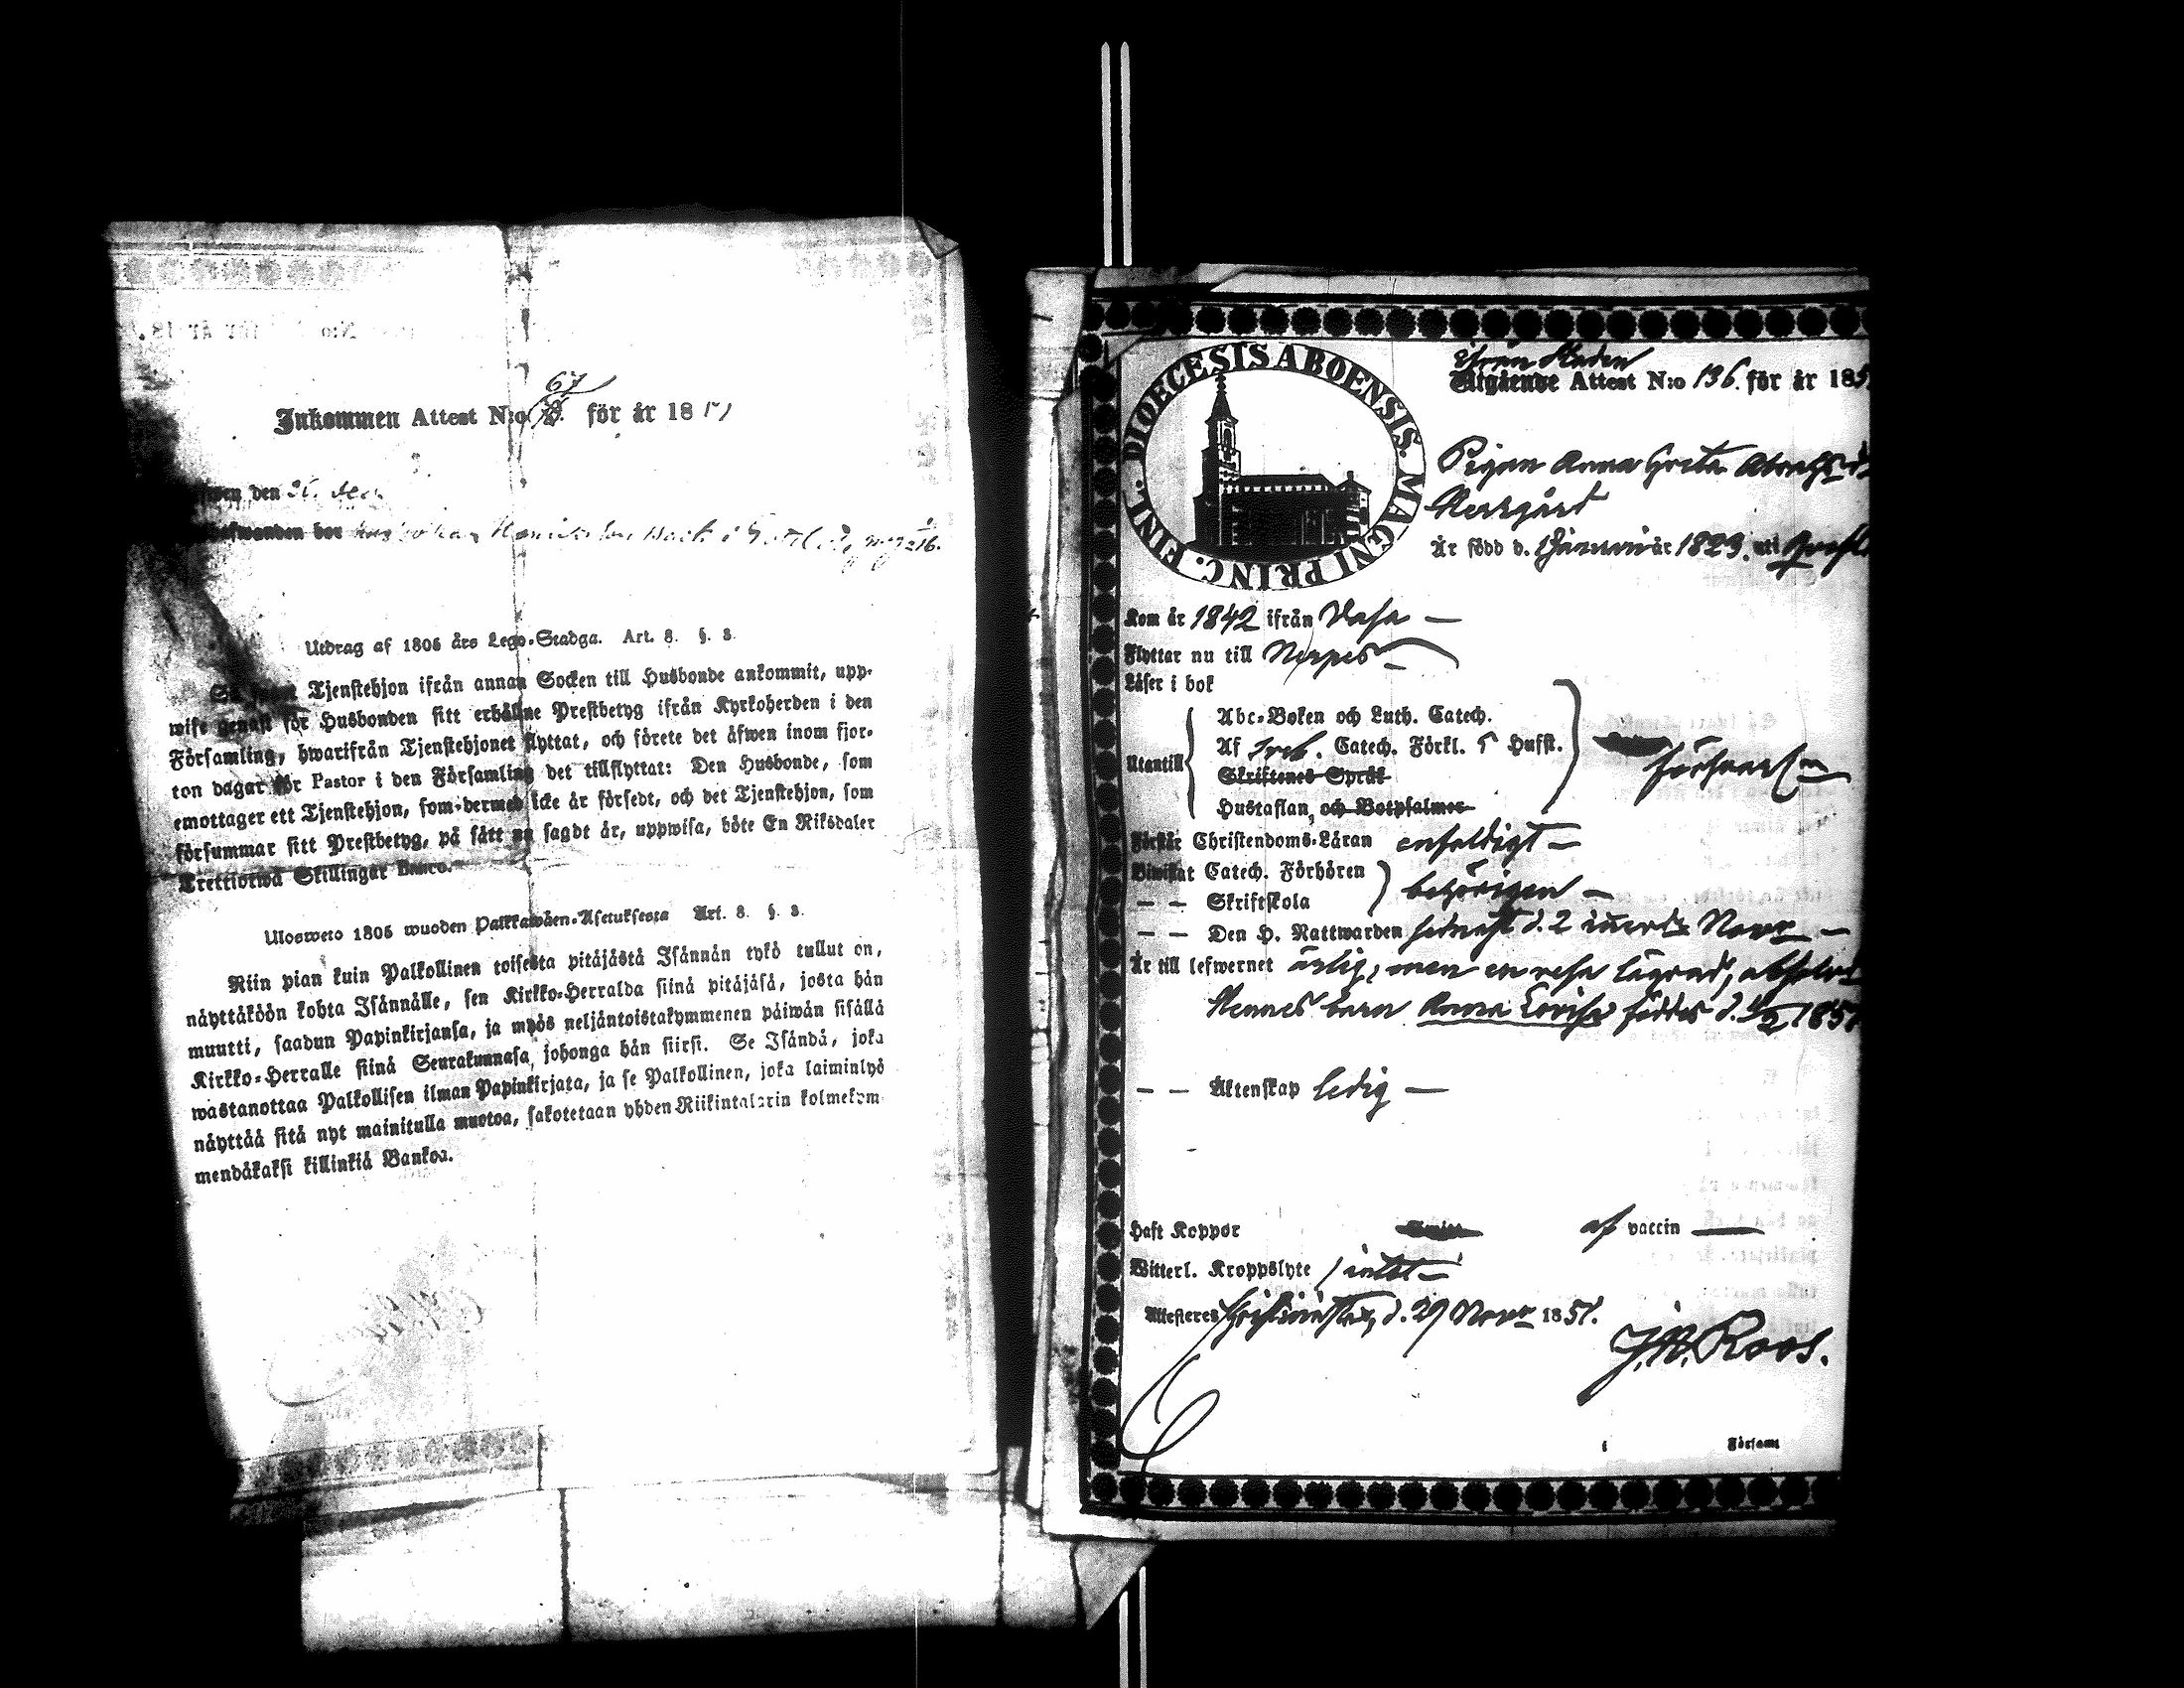 Inkommen Attest N:o 67 för år 18
den
hos
Utdrag af 1805 års Lego-Stadga. Art. 8. §. 3.
Tjenstehjon ifrån annan Socken till Husbonde ankommit, upp-
wise genast för Husbonden sitt erhållne Prestbetyg ifrån Kyrkoherden i den
Församling, hwarifrån Tjenstehjonet flyttat, och förete det äfwen inom fjor-
ton dagar för Pastor i den Församling det tillflyttat: Den Husbonde, som
emottager ett Tjenstehjon, som dermed icke är försedt, och det Tjenstehjon, som
försummar sitt Prestbetyg, på sätt nu sagdt är, uppwisa, böte En Riksdaler
Trettiotwå Skillingar Banco.
Ulosweto 1805 wuoden Palkkawäen-Asetuksesta Art. 8. §. 3.
Niin pian kuin Palkollinen toisesta pitäjästä Isännän tykö tullut on,
näyttäköön kohta Isännälle, sen Kirkko-Herralda siinä pitäjäsä, josta hän
muutti, saadun Papinkirjansa, ja myös neljäntoistakymmenen päiwän sisällä
Kirkko-Herralle siinä Seurakunnasa, johonga hän siirsi. Se Isändä, joka
wastanottaa Palkollisen ilman Papinkirjata, ja se Palkollinen, joka laiminlyö
näyttää sitä nyt mainitulla muotoa, sakotetaan yhden Riikintalarin kolmekym-
mendäkaksi killinkiä Bankoa.
DIOECESIS ABOENSIS. MAGNI PRINC. FINL.
ifrån Staden
Utgående Attest N:o 136. för år 185
Pigan Anna Greta
Är född d. 1 Januari år 1823. uti
Kom år 1842 ifrån Vasa —
Flyttar nu till Nerpes —
Läser i bok
Abc-Boken och Luth. Catech.
Utantill Af Sveb. Catech. Förkl. 5 Hufst. försvarl
Skriftenes Språk
Hustaflan, och Botpsalmer
Förstår Christendoms-Läran enfaldigt —
Biwistat Catech. Förhören behörigen —
— — Skriftskola
— — Den H. Nattwarden sednast d. 2 Novr —
Är till lefwernet ärlig, men en resa lägrad,
Hennes barn Anna Lovisa föddes d. 185
— — Äktenskap ledig —
Haft Koppor af vaccin —
Witterl. Kroppslyte intet —
Attesteres Christinestad, d. 29 Novr 1851.
J.N. Roos.
i Församl